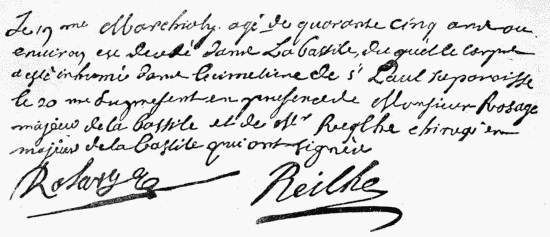 Le 19me Marchioly agé de quarante cinq ans ou
environ est decedé dans La bastile, du quel le corps
a esté inhumé dans le cimetiere de st Paul sa paroisse
le 20me du present en presence de Monsieur Rosage
majeur de la bastile et de Mr Reglhe chirugien
majeur de la bastile qui ont signée
Rosarges
Reilhe